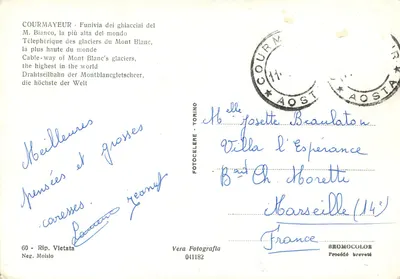 COURMAYEUR - Funivia dei ghiacciai del
M. Bianco, la più alta del mondo
Télépherique des glaciers du Mont Blanc,
la plus haute du monde
Cable-way of Mont Blanc's glaciers,
the highest in the world
Drahtseilbahn der Montblancgletscher,
die höchste der Welt
Meilleures
pensées et grosses
caresses.
60 - Rip. Vietata
Neg. Moisio
FOTOCELERE - TORINO
Vera Fotografia
041182
COURM
11
AOST
UR
AOSTA
Melle Josette Beaulaton
Villa l'Espérance
Bard Ch Moretti
Marseille (14)
France
BROMOCOLOR